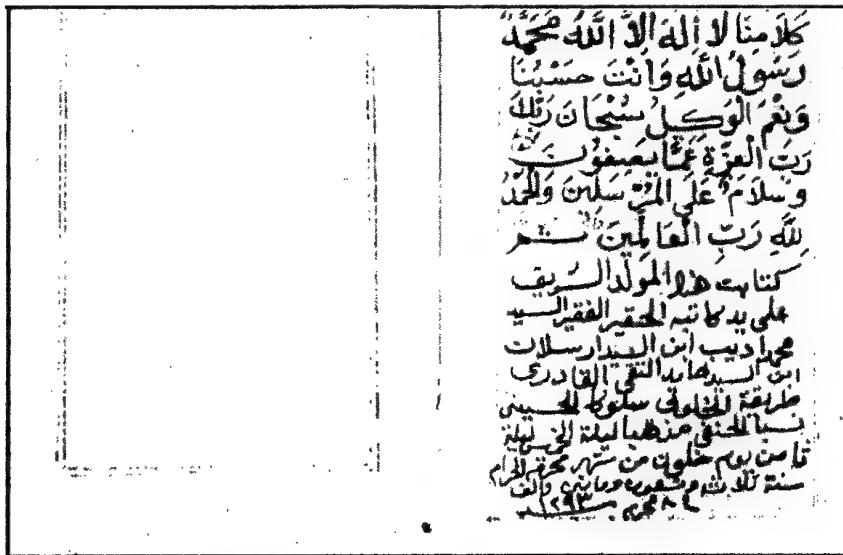 كَلَامِنَا لَا إِلَهَ إِلَّا اللَّهُ مُحَمَّدٌ
رَسُولُ اللَّهِ وَأَنْتَ حَسْبُنَا
وَنِعْمَ الْوَكِيلُ سُبْحَانَ رَبِّكَ
رَبِّ الْعِزَّةِ عَمَّا يَصِفُونَ
وَسَلَامٌ عَلَى الْمُرْسَلِينَ وَالْحَمْدُ
لِلَّهِ رَبِّ الْعَالَمِينَ تم
كتابت هذا المولد الشريف
على يد كاتبه الحقير الفقير السيد
محمد اديب ابن السيد ارسلان
ابن السيد حامد التقي القادري
طريقة الخلوتي سلوكا الحسيني
نسبا الحنفي مذهبا ليلة ليلة
ثامن يوم خلون من شهر محرم الحرام
سنة ثلاثة وتسعون ومايتين والف
٨ محرم ١٢٩٣